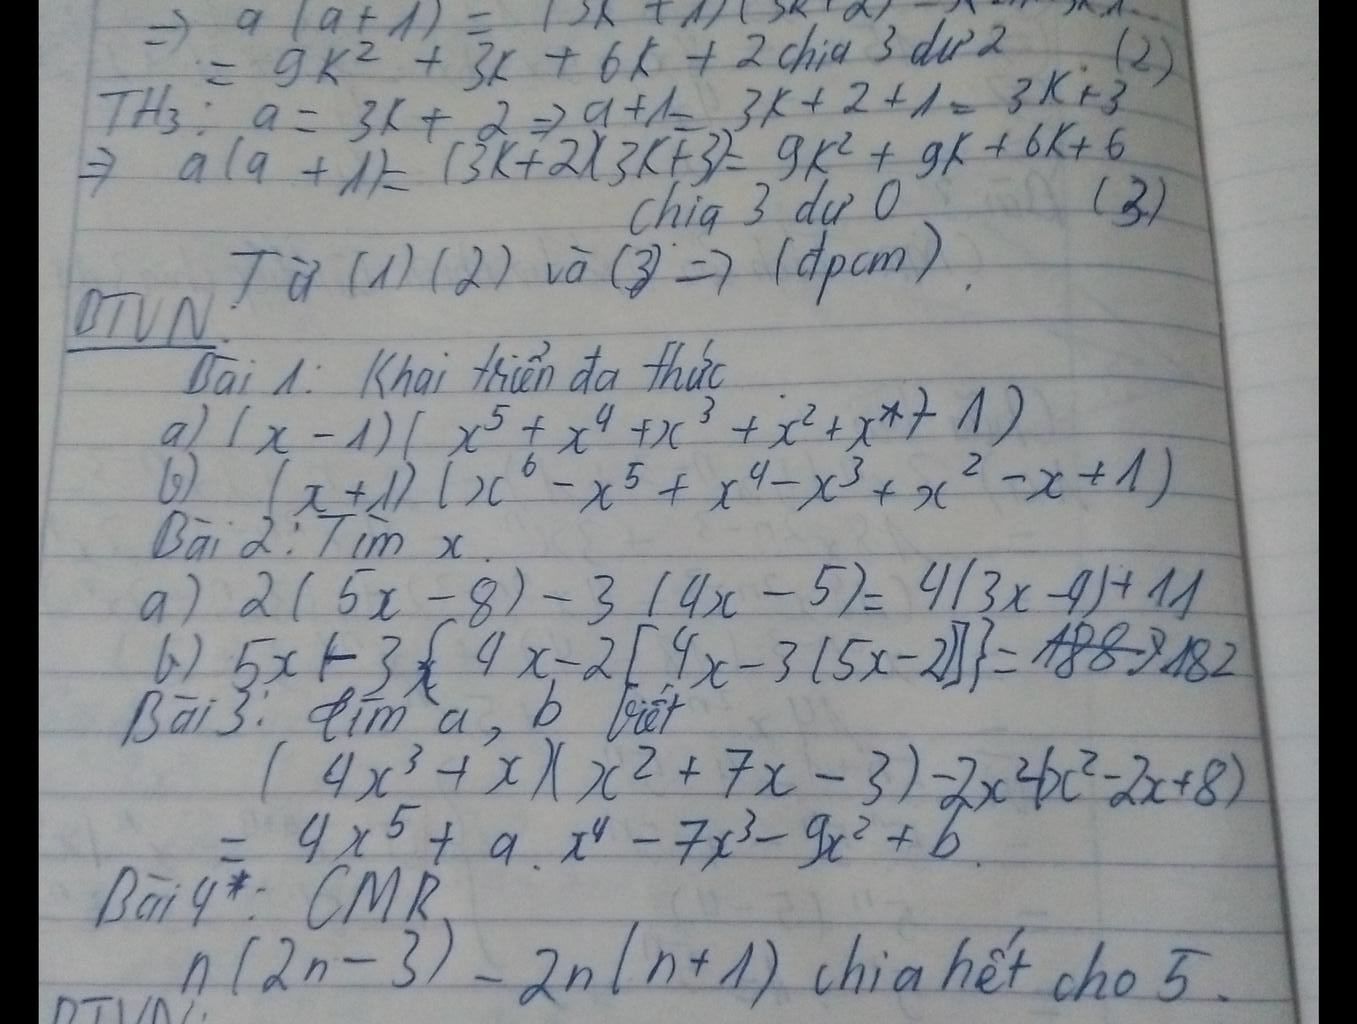 ⇒ a(a+1) = (3k+1)(3k+2)
= 9k² + 3k + 6k + 2 chia 3 dư 2 (2)
TH3: a = 3k + 2 ⇒ a+1 = 3k + 2 + 1 = 3k+3
⇒ a(a + 1) = (3k+2)(3k+3) = 9k² + 9k + 6k + 6
chia 3 dư 0 (3)
Từ (1) (2) và (3) ⇒ (đpcm).
BTVN:
Bài 1: Khai triển đa thức
a) (x - 1)(x⁵ + x⁴ + x³ + x² + x + 1)
b) (x+1)(x⁶ - x⁵ + x⁴ - x³ + x² - x + 1)
Bài 2: Tìm x.
a) 2(5x - 8) - 3(4x - 5) = 4(3x - 4) + 11
b) 5x - 3{4x - 2[4x - 3(5x - 2)]} = 182
Bài 3: tìm a, b biết
(4x³ + x)(x² + 7x - 3) - 2x²(x² - 2x + 8)
= 4x⁵ + a.x⁴ - 7x³ - 9x² + b.
Bài 4*: CMR
n(2n - 3) - 2n(n+1) chia hết cho 5.
BTVN: